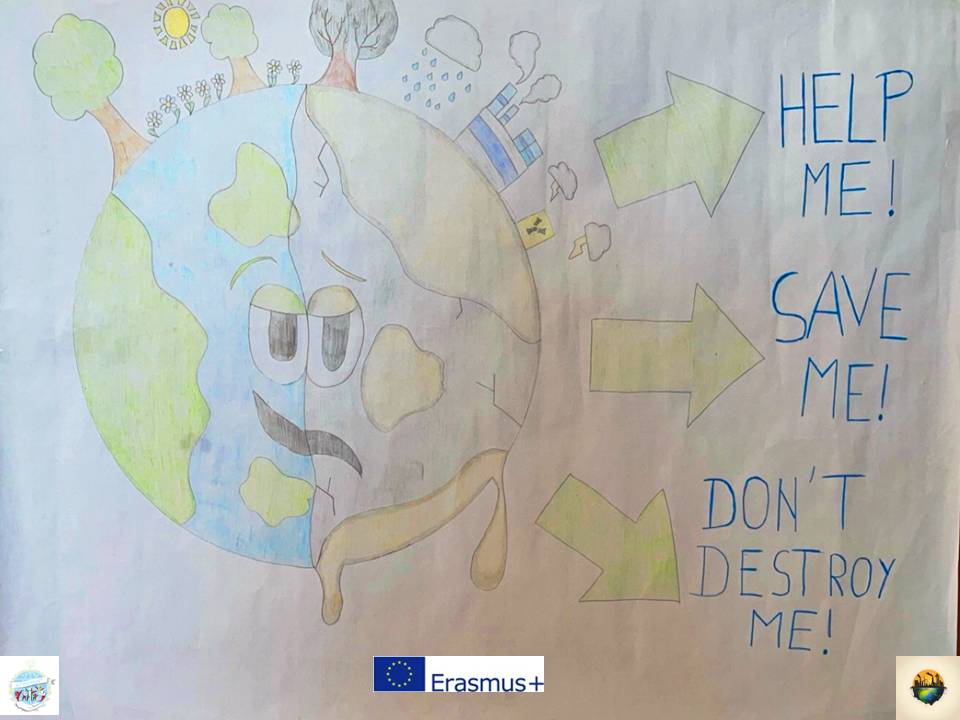 HELP
ME!
SAVE
ME!
DON'T
DESTROY
ME!
Erasmus+